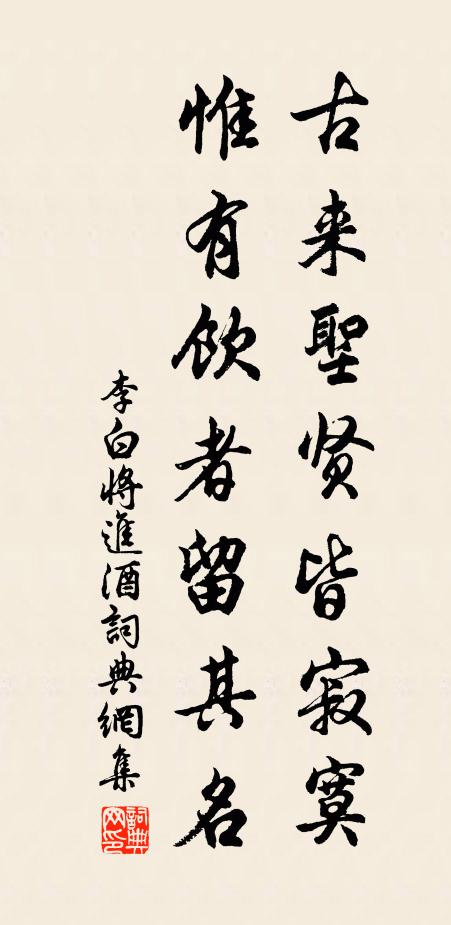 古来聖贤皆寂寞
惟有飲者留其名
李白將進酒詞典網集
詞典网印